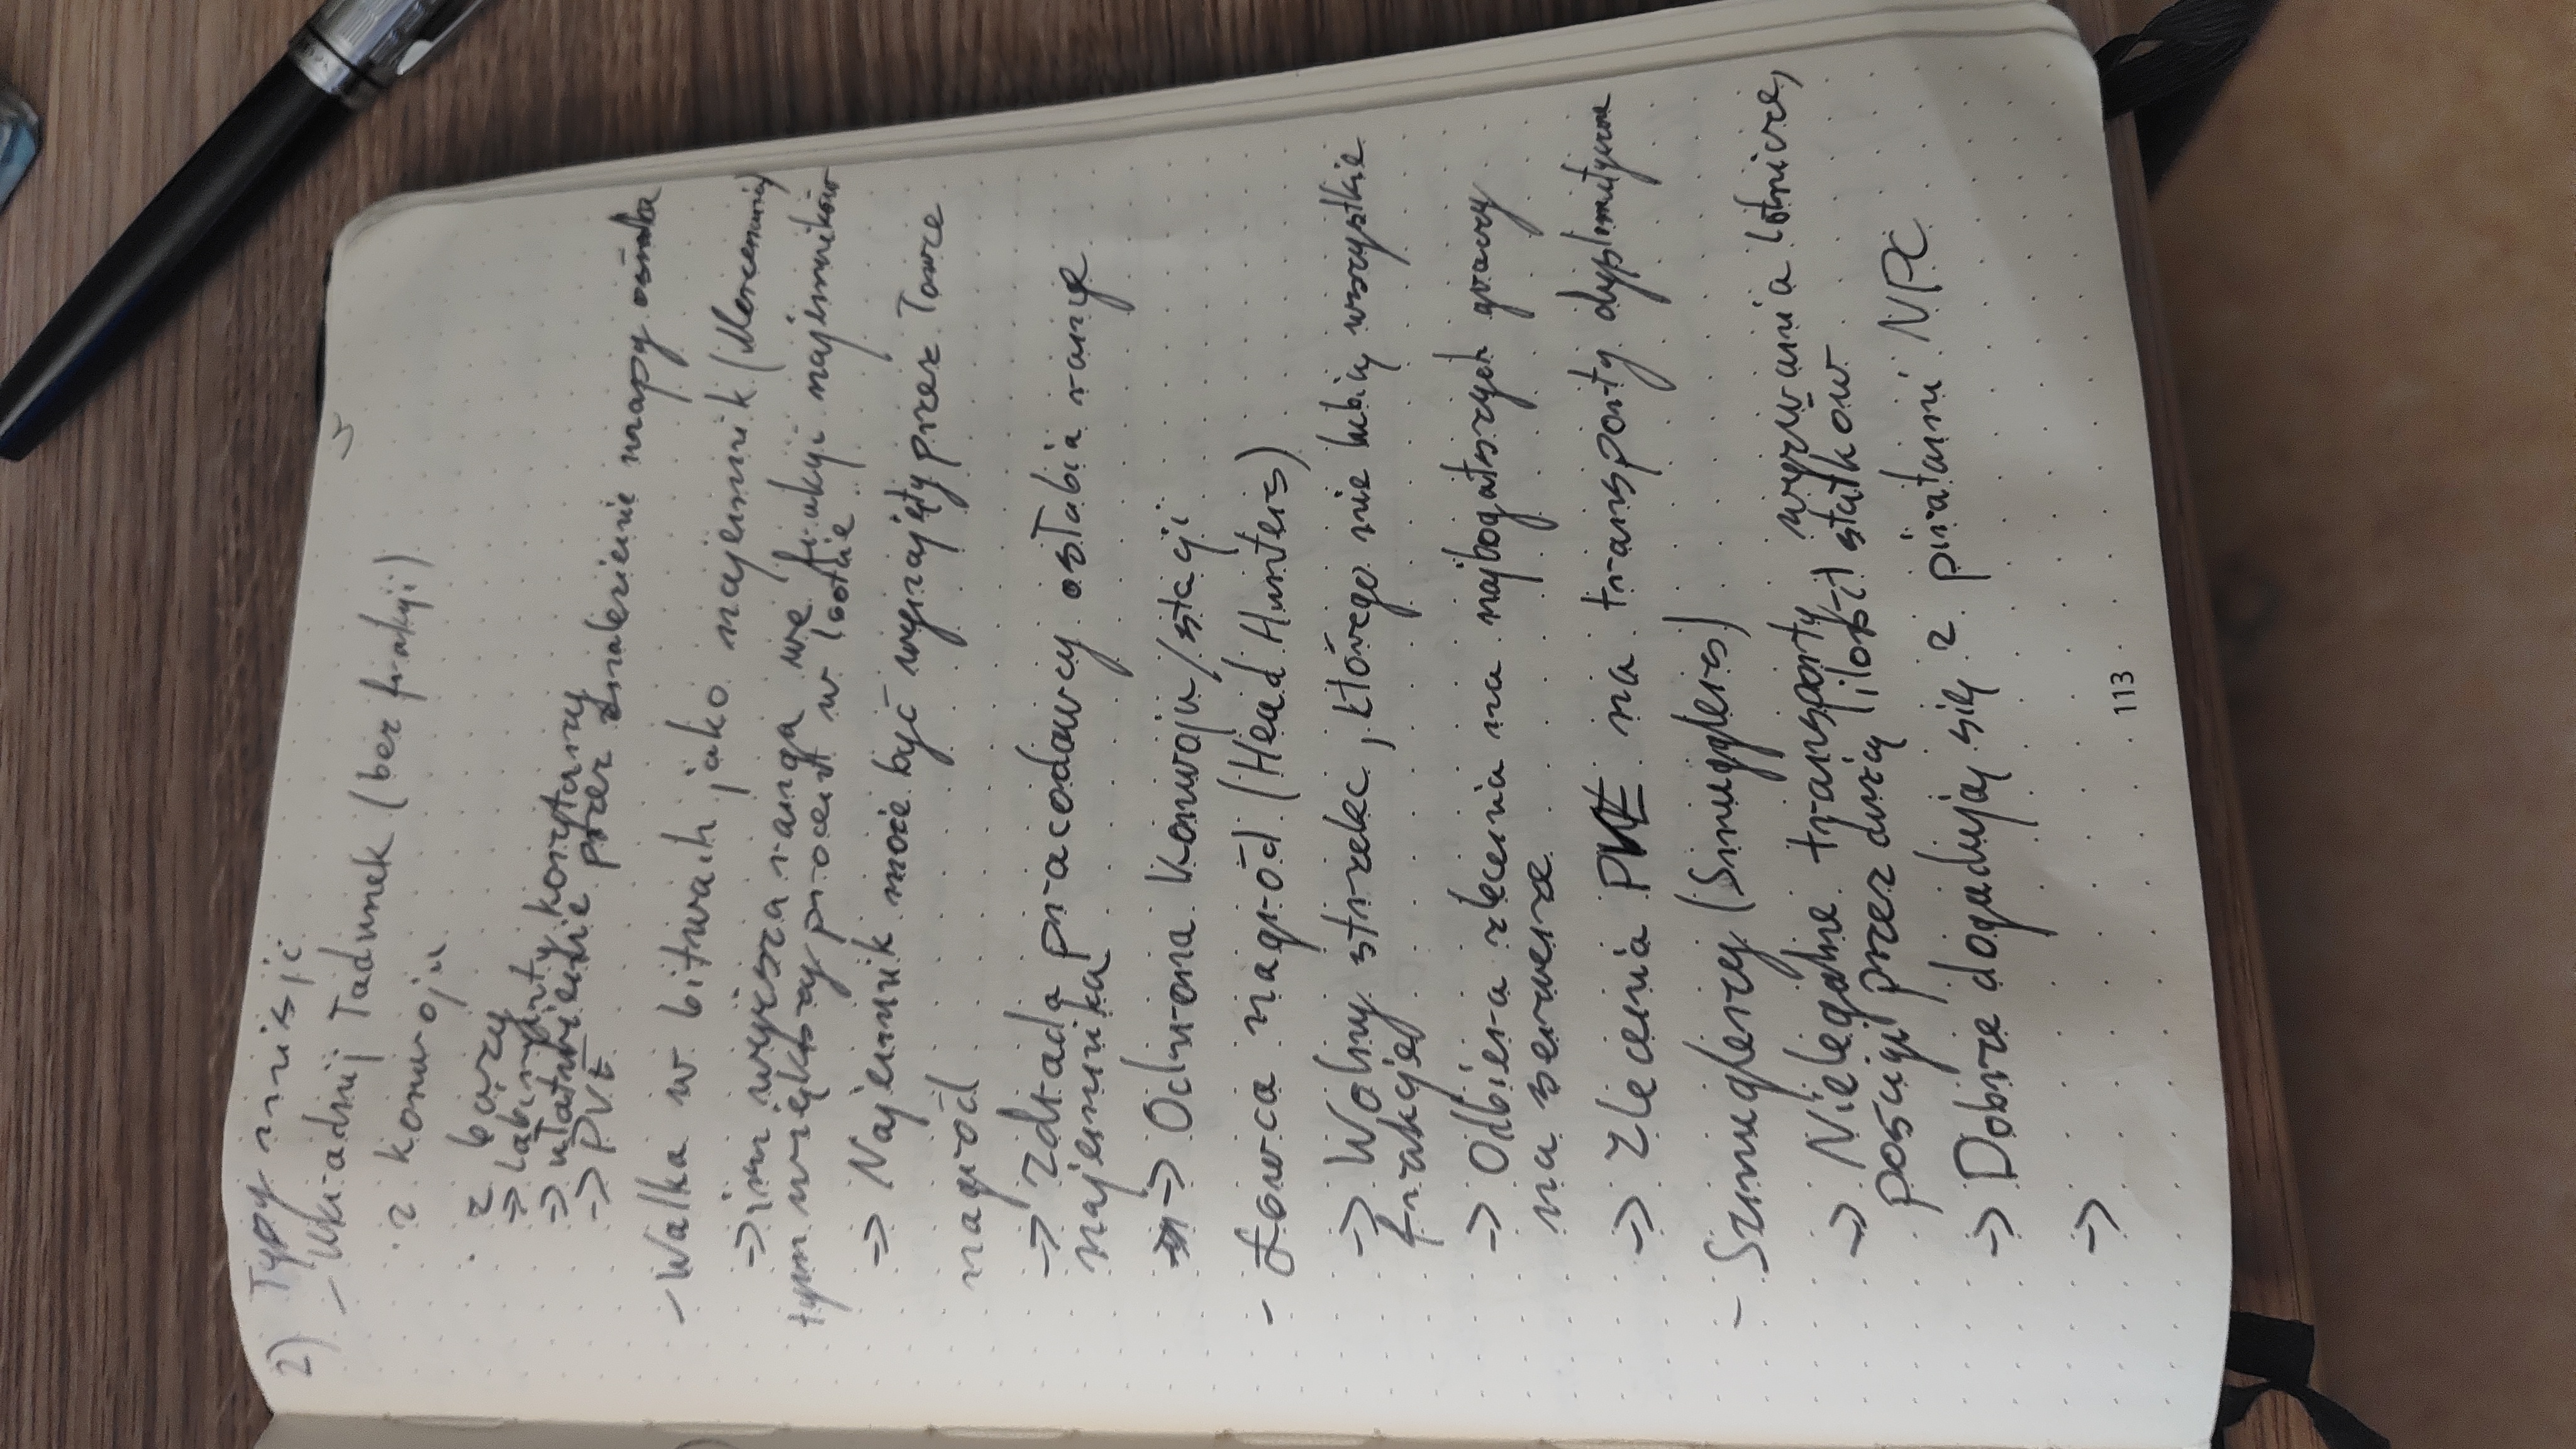 2) Typy misji
- Ukradnij ładunek (bez frakcji)
· z konwoju
· z bazy
-> labirynty korytarzy
-> ułatwienie przez znalezienie mapy ośrodka
-> PVE
- Walka w bitwach jako najemnik (Mercenaria)
-> im wyższa ranga we frakcji najemników
tym większy procent w lootcie
-> Najemnik może być wynajęty przez łowce
nagród
-> Zdrada pracodawcy osłabia range
najemnika
-> Ochrona Konwoju/stacji
- Łowca nagród (Head Hunters)
-> Wolny strzelec, którego nie lubią wszystkie
frakcje
-> Odbiera zlecenia na najbogatszych graczy
na serwerze
-> Zlecenia PVE na transporty dyplomatyczne
- Szmuglerzy (Smugglers)
-> Nielegalne transporty, wyzwania lotnicze,
pościgi przez dużą ilość statków
-> Dobrze dogadują się z piratami NPC
->
113